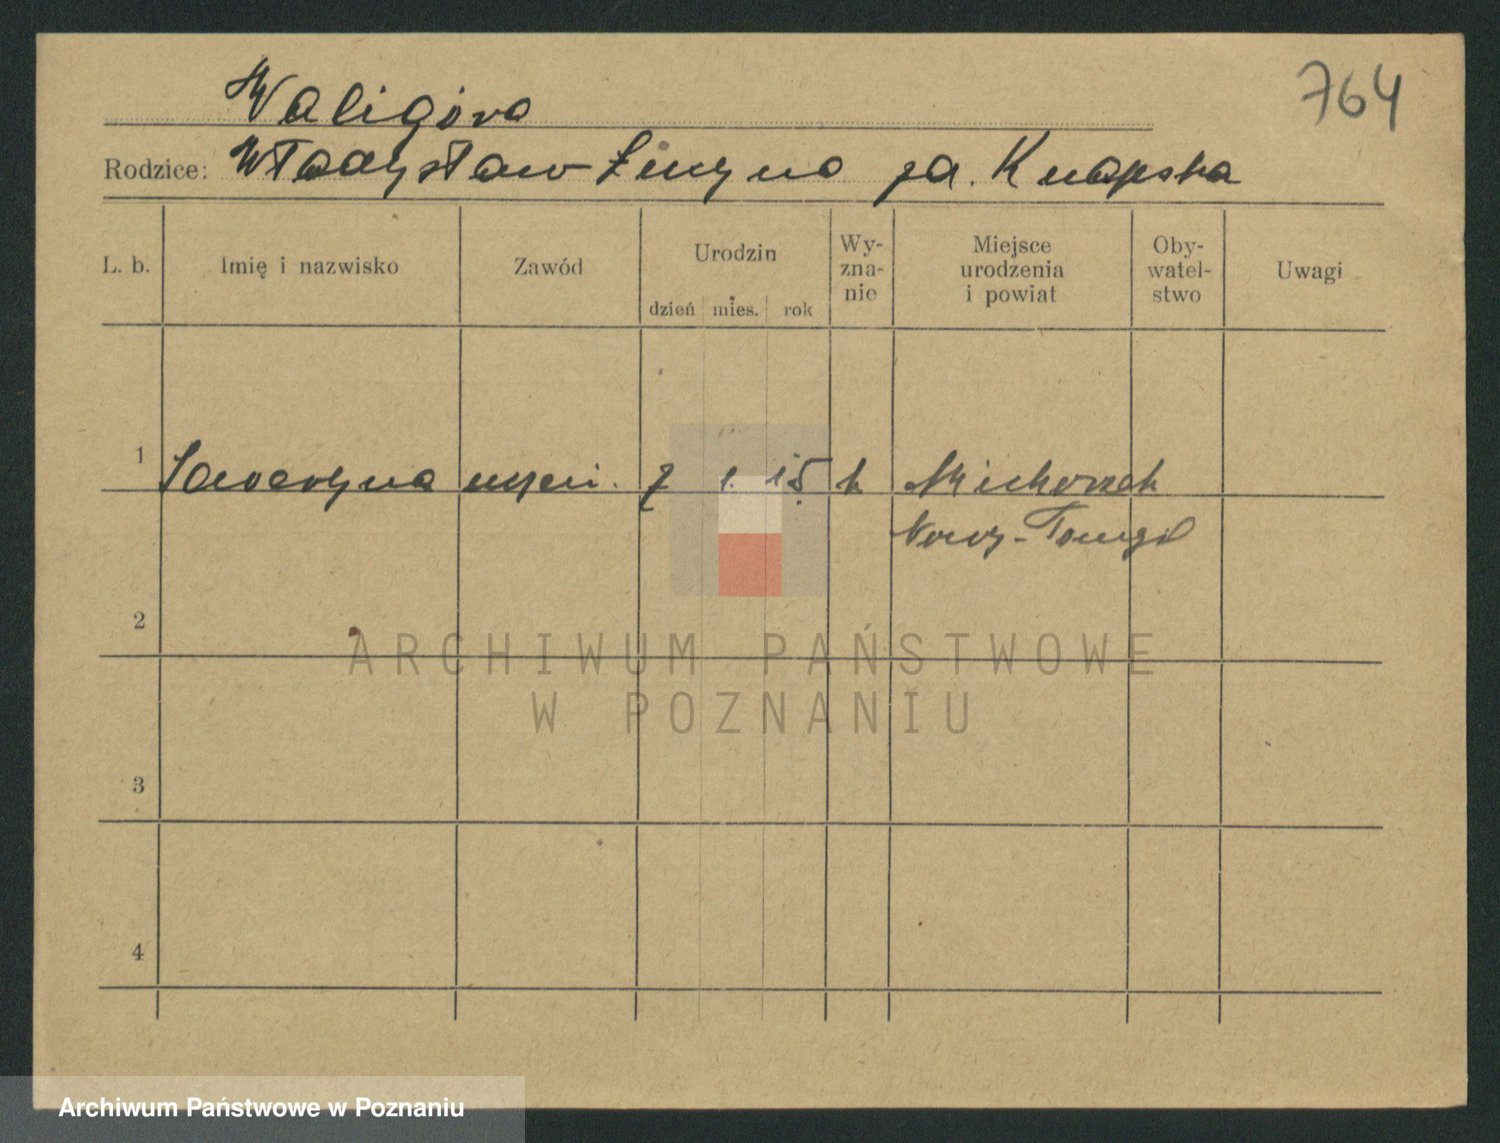 764
Waligóra
Rodzice: Władysław Łucyna za. Knapska
L. b. Imię i nazwisko Zawód Urodzin dzień mies. rok Wy-zna-nie Miejsce urodzenia i powiat Oby-watel-stwo Uwagi
1 Seweryna 7 1. 15 k Michorzek
Nowy-Tomyśl
2
3
4
ARCHIWUM PAŃSTWOWE
W POZNANIU
Archiwum Państwowe w Poznaniu